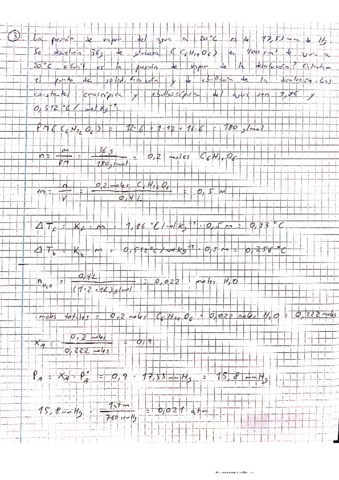 ③ La presión de vapor del agua a 20°C es de 17,53 mm de Hg.
Se disuelven 36g de glucosa (C₆H₁₂O₆) en 400 cm³ de agua a
20°C. ¿Cuál es la presión de vapor de la disolución? Calcular
el punto de solidificación y de ebullición de la disolución. Las
constantes crioscópica y ebulloscópica del agua son 1,86 y
0,512 °C/mol kg⁻¹.
PM(C₆H₁₂O₆) = 12·6 + 1·12 + 16·6 = 180 g/mol
n = m/PM = 36g/180g/mol = 0,2 moles C₆H₁₂O₆
m = n/V = 0,2 moles C₆H₁₂O₆/0,4L = 0,5 m
ΔT_f = K_f · m = 1,86 °C/mol kg⁻¹ · 0,5 m = 0,93 °C
ΔT_b = K_b · m = 0,512 °C/mol kg⁻¹ · 0,5 m = 0,256 °C
n_H₂O = 0,4L/(1·2+16)g/mol = 0,022 moles H₂O
moles totales = 0,2 moles C₆H₁₂O₆ + 0,022 moles H₂O = 0,222 moles
X_A = 0,2 moles/0,222 moles = 0,9
P_A = X_A · P°_A = 0,9 · 17,53 mmHg = 15,8 mmHg
15,8 mmHg · 1 atm/760 mmHg = 0,021 atm